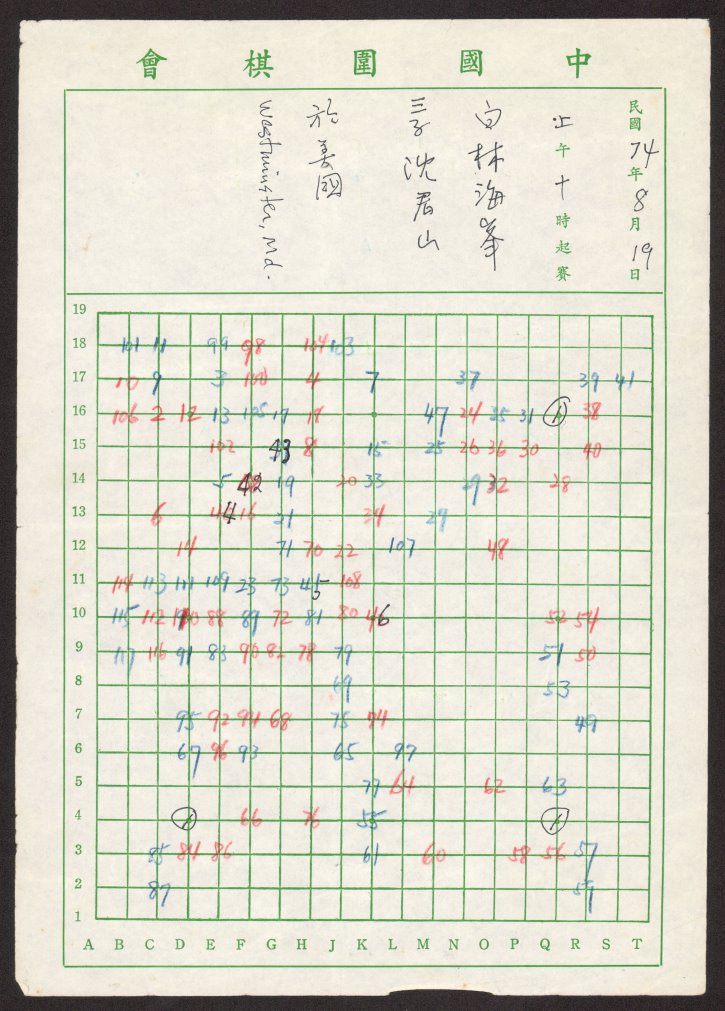 中國圍棋會
民國74年8月19日
上午十時起賽
白林海峯
三子沈君山
於美國
Westminster, Md.
19
18 101 11 99 98 104 103
17 10 9 3 100 4 7 37 39 41
16 106 2 12 13 105 17 47 24 35 31 38
15 102 43 8 15 25 26 36 30 40
14 5 42 19 20 33 32 28
13 6 44 16 21
12 14 71 70 22 107 48
11 114 113 111 109 23 73 45 108
10 115 112 110 88 89 72 81 80 46 52 54
9 117 116 91 83 90 82 78 79 51 50
8 69 53
7 95 92 94 68 75 74 49
6 67 96 93 65 97
5 77 64 62 63
4 66 76 55
3 85 84 86 61 60 58 56 57
2 87 59
1
A B C D E F G H J K L M N O P Q R S T